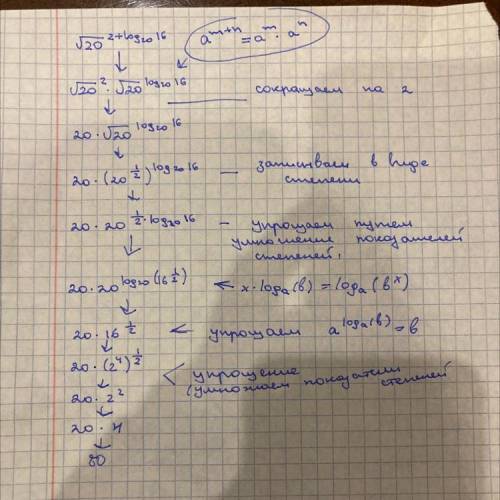 √20^(2+log₂₀16)   a^(m+n) = a^m · a^n
√20² · √20^(log₂₀16)   сокращаем на 2
20 · √20^(log₂₀16)
20 · (20^(1/2))^(log₂₀16) — записываем в виде
степени
20 · 20^(1/2 · log₂₀16) – упрощаем путем
умножение показателей
степеней,
20 · 20^(log₂₀(16^(1/2))) ← x · logₐ(в) = logₐ(в^x)
20 · 16^(1/2) < упрощаем a^(logₐ(в)) = в
20 · (2⁴)^(1/2) < упрощение
(умножаем показатели
степеней
20 · 2²
20 · 4
80